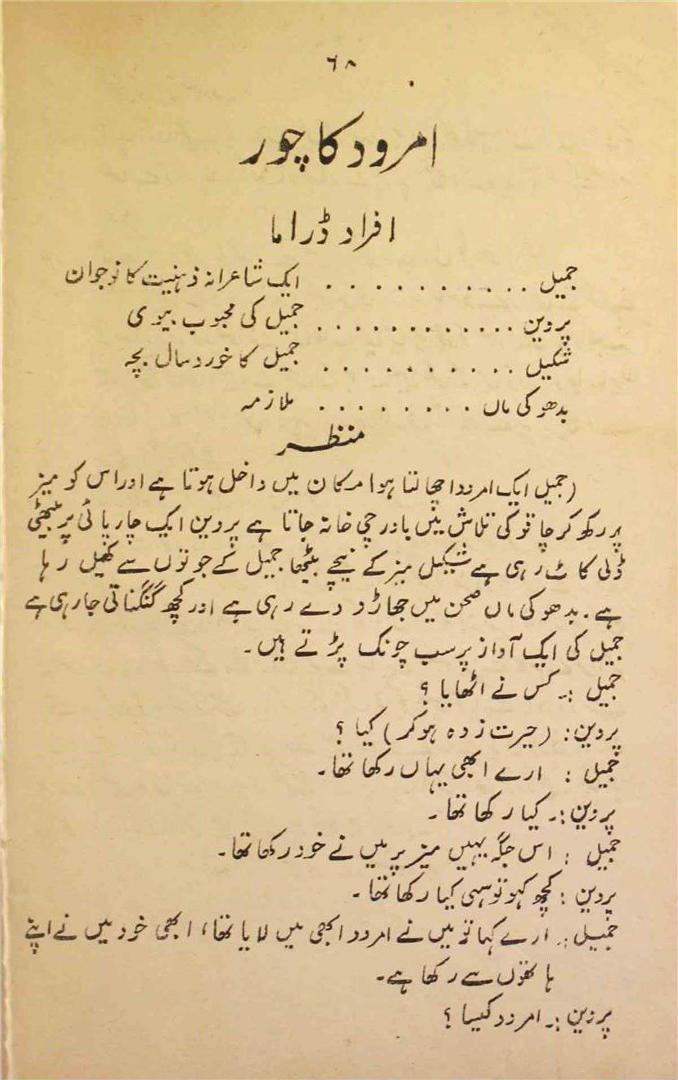 ۶۸
امرود کا چور
افراد ڈراما
جمیل . . . . . . . . . . . ایک شاعرانہ ذہنیت کا نوجوان
پروین . . . . . . . . . . . . جمیل کی محبوب بیوی
شکیل . . . . . . . . . . . جمیل کا خورد سال بچہ
بدھو کی ماں . . . . . . . . ملازمہ
منظر
(جمیل ایک امرود اچھالتا ہوا مکان میں داخل ہوتا ہے اور اس کو میز
پر رکھ کر چاقو کی تلاش میں باورچی خانہ جاتا ہے پروین ایک چارپائی پر بیٹھی
ڈلی کاٹ رہی ہے شکیل میز کے نیچے بیٹھا جمیل کے جوتوں سے کھیل رہا
ہے۔ بدھو کی ماں صحن میں جھاڑو دے رہی ہے اور کچھ گنگناتی جا رہی ہے
جمیل کی ایک آواز پر سب چونک پڑتے ہیں۔
جمیل :۔ کس نے اٹھایا ؟
پروین : (حیرت زدہ ہو کر) کیا ؟
جمیل : ارے ابھی یہاں رکھا تھا۔
پروین :۔ کیا رکھا تھا۔
جمیل : اس جگہ یہیں میز پر میں نے خود رکھا تھا۔
پروین : کچھ کہو تو سہی کیا رکھا تھا۔
جمیل :۔ ارے کہا تو میں نے امرود ابھی میں لایا تھا، ابھی خود میں نے اپنے
ہاتھوں سے رکھا ہے۔
پروین :۔ امرود کیسا ؟